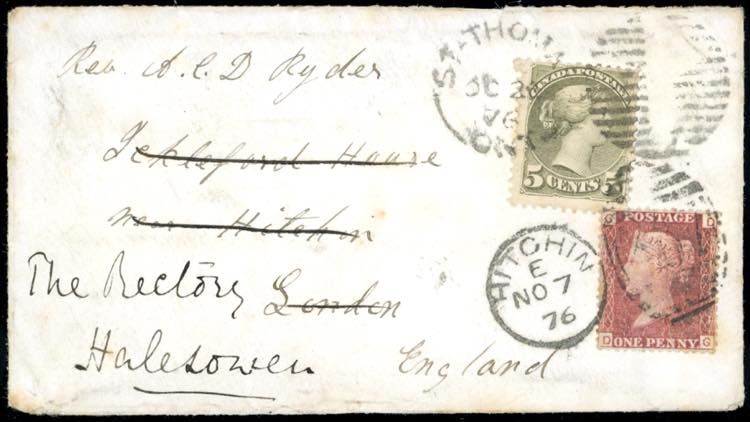 Rev. A. C. D Ryder
Ickleford House
near Hitchin
The Rectory London
Halesowen England
ST-THOMA
OC
76
ONT
CANADA POSTAGE
5 CENTS 5
HITCHIN
E
NO 7
76
G POSTAGE D
D ONE PENNY G